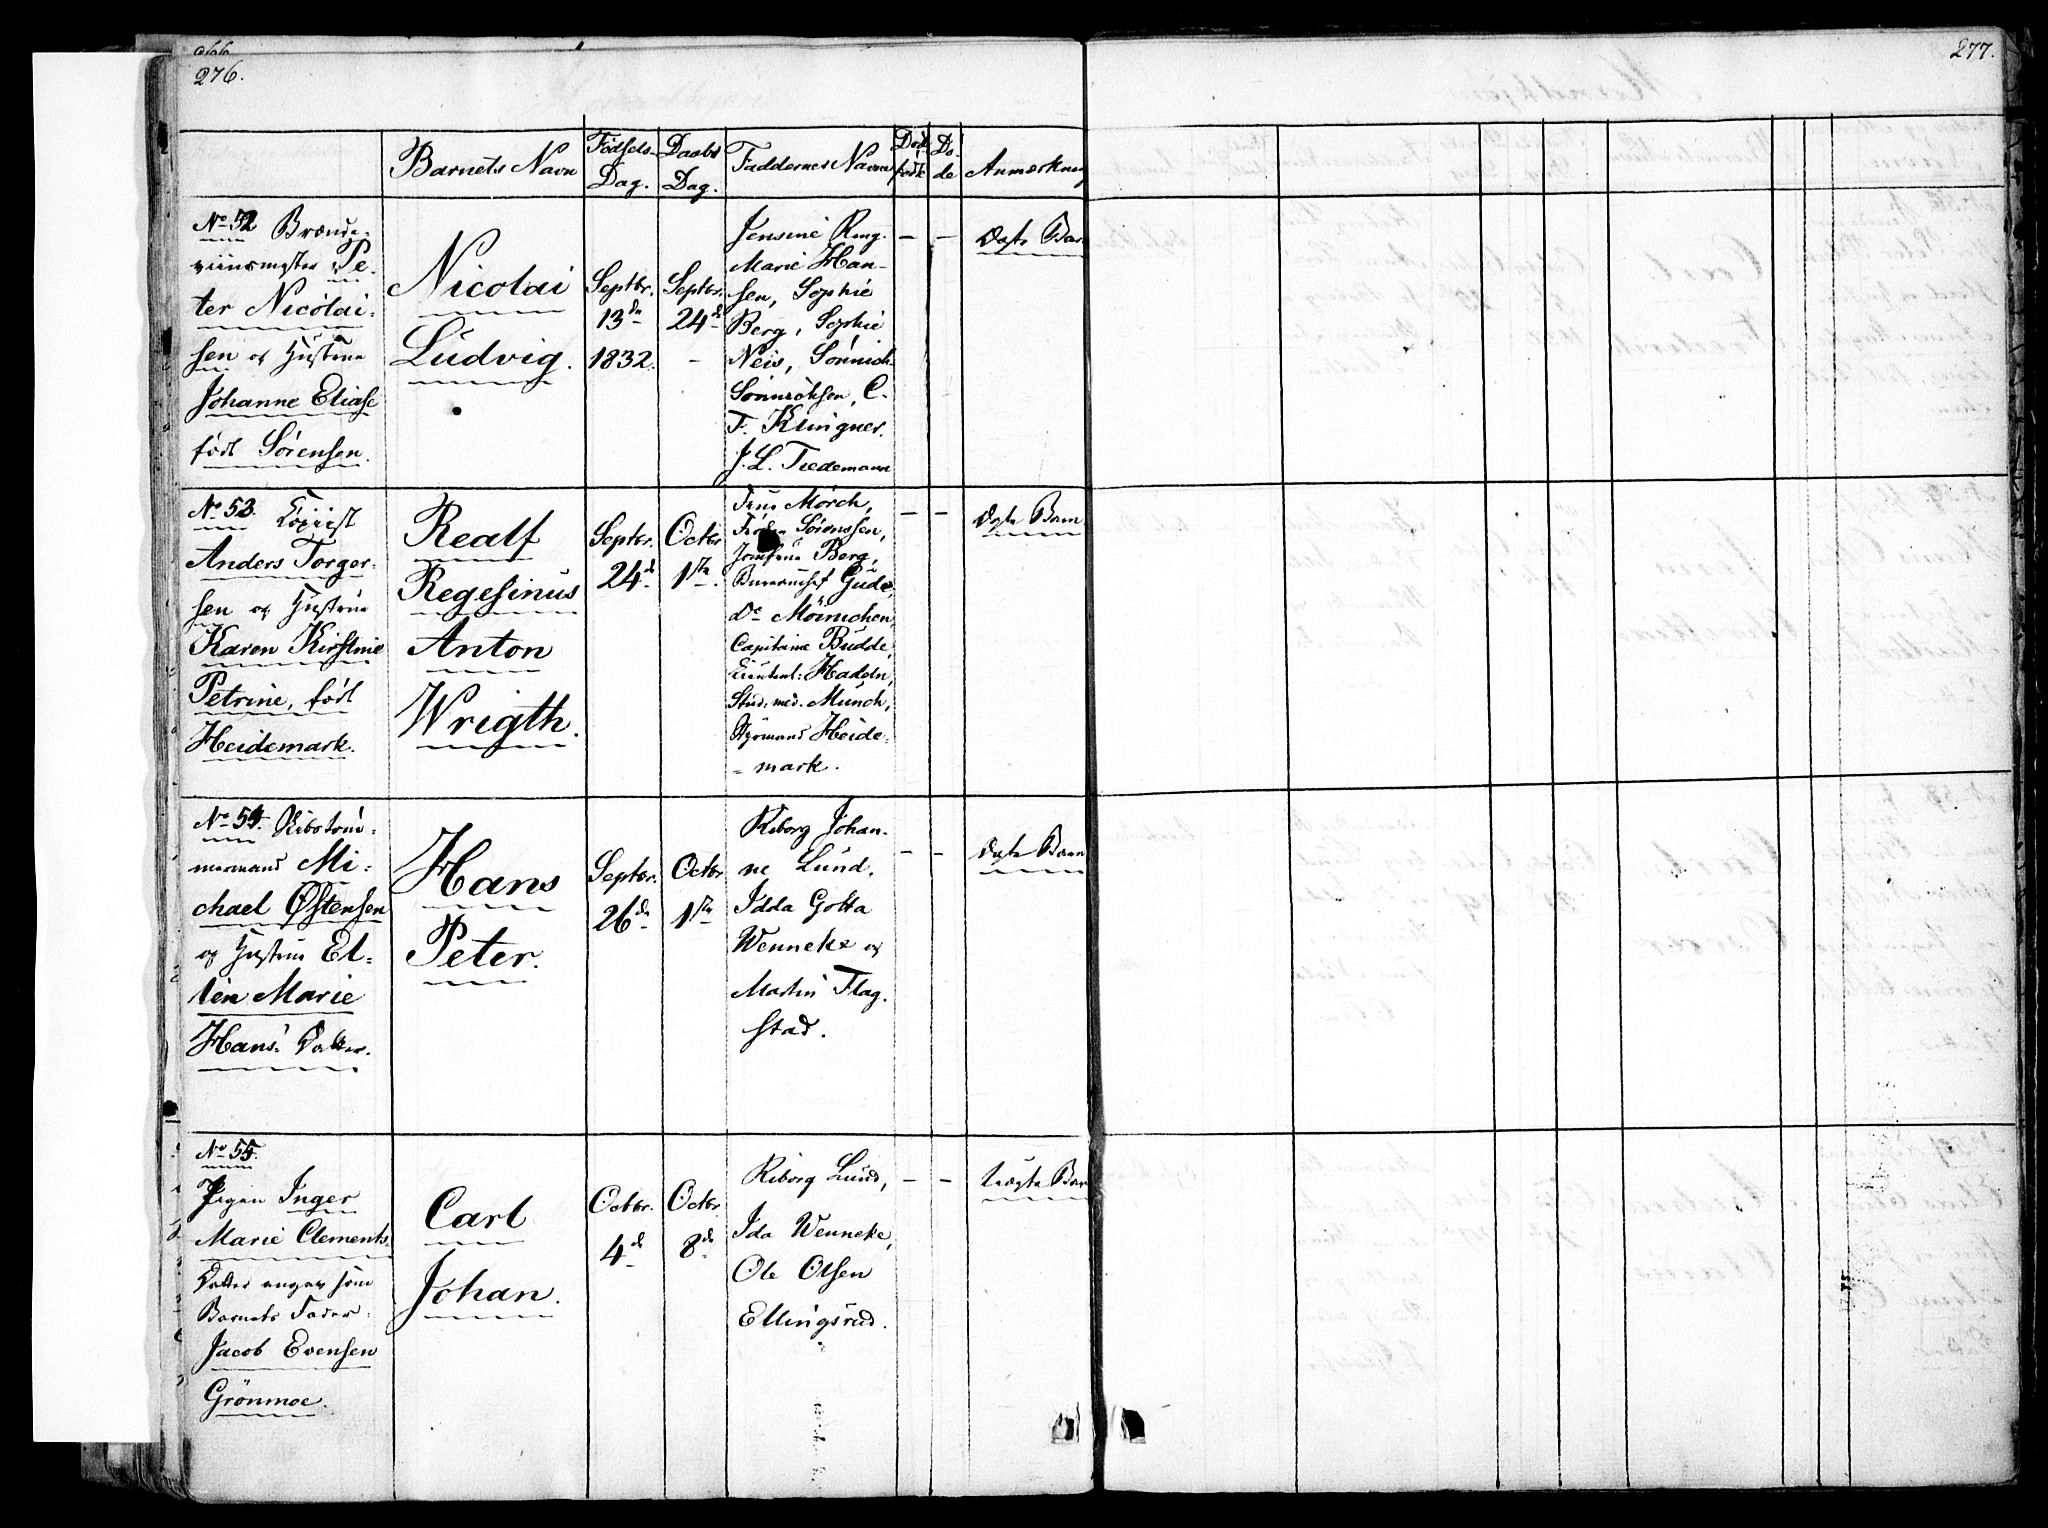 266
276.
277.
Barnets Navn
Fødsels-
Dag.
Daabs
Dag.
Faddernes Navne
Død
født
Dø-
de
Anmærkning
No 52 Brænde-
viinsmester Pe-
ter Nicolai-
sen og Hustrue
Johanne Elise
født Sørensen.
Nicolai
Ludvig.
Septbr.
13de
1832.
Septbr.
24de
-
Jensine Ring.
Marie Han-
sen, Sophie
Berg, Sophie
Neis, Sønnich
Sønnichsen, C.
F. Klingner.
J. L. Tiedemann
-
-
Ægte Bar
No 53. Copiist
Anders Torger-
sen og Hustrue
Karen Kirstine
Petrine, født
Heidemark.
Realf
Regesinus
Anton
Wrigth.
Septbr.
24d
Octbr
1ste
Frue Mørch,
Frøken Sørenssen,
Jomfrue Berg,
Gude,
Do Møinichen,
Capitaine Budde,
Lieutent: Hadeln,
Stud. med. Munch,
Styrmand Heide-
mark.
-
-
Ægte Barn
No 54. Skibstøm-
mermand Mi-
chael Østensen
og Hustrue El-
len Marie
Hans' Datter.
Hans
Peter.
Septbr.
26de
Octbr
1ste
Riborg Johan-
ne Lund,
Idda Gotta
Wenneke og
Martin Flag-
stad.
-
-
Ægte Barn
No 55.
Pigen Inger
Marie Clements-
Datter angav som
Barnets Fader:
Jacob Evensen
Grønmoe.
Carl
Johan.
Octbr.
4de
Octbr.
8de
Riborg Lund,
Ida Wenneke,
Ole Olsen
Ellingsrud.
-
-
Uægte Bar